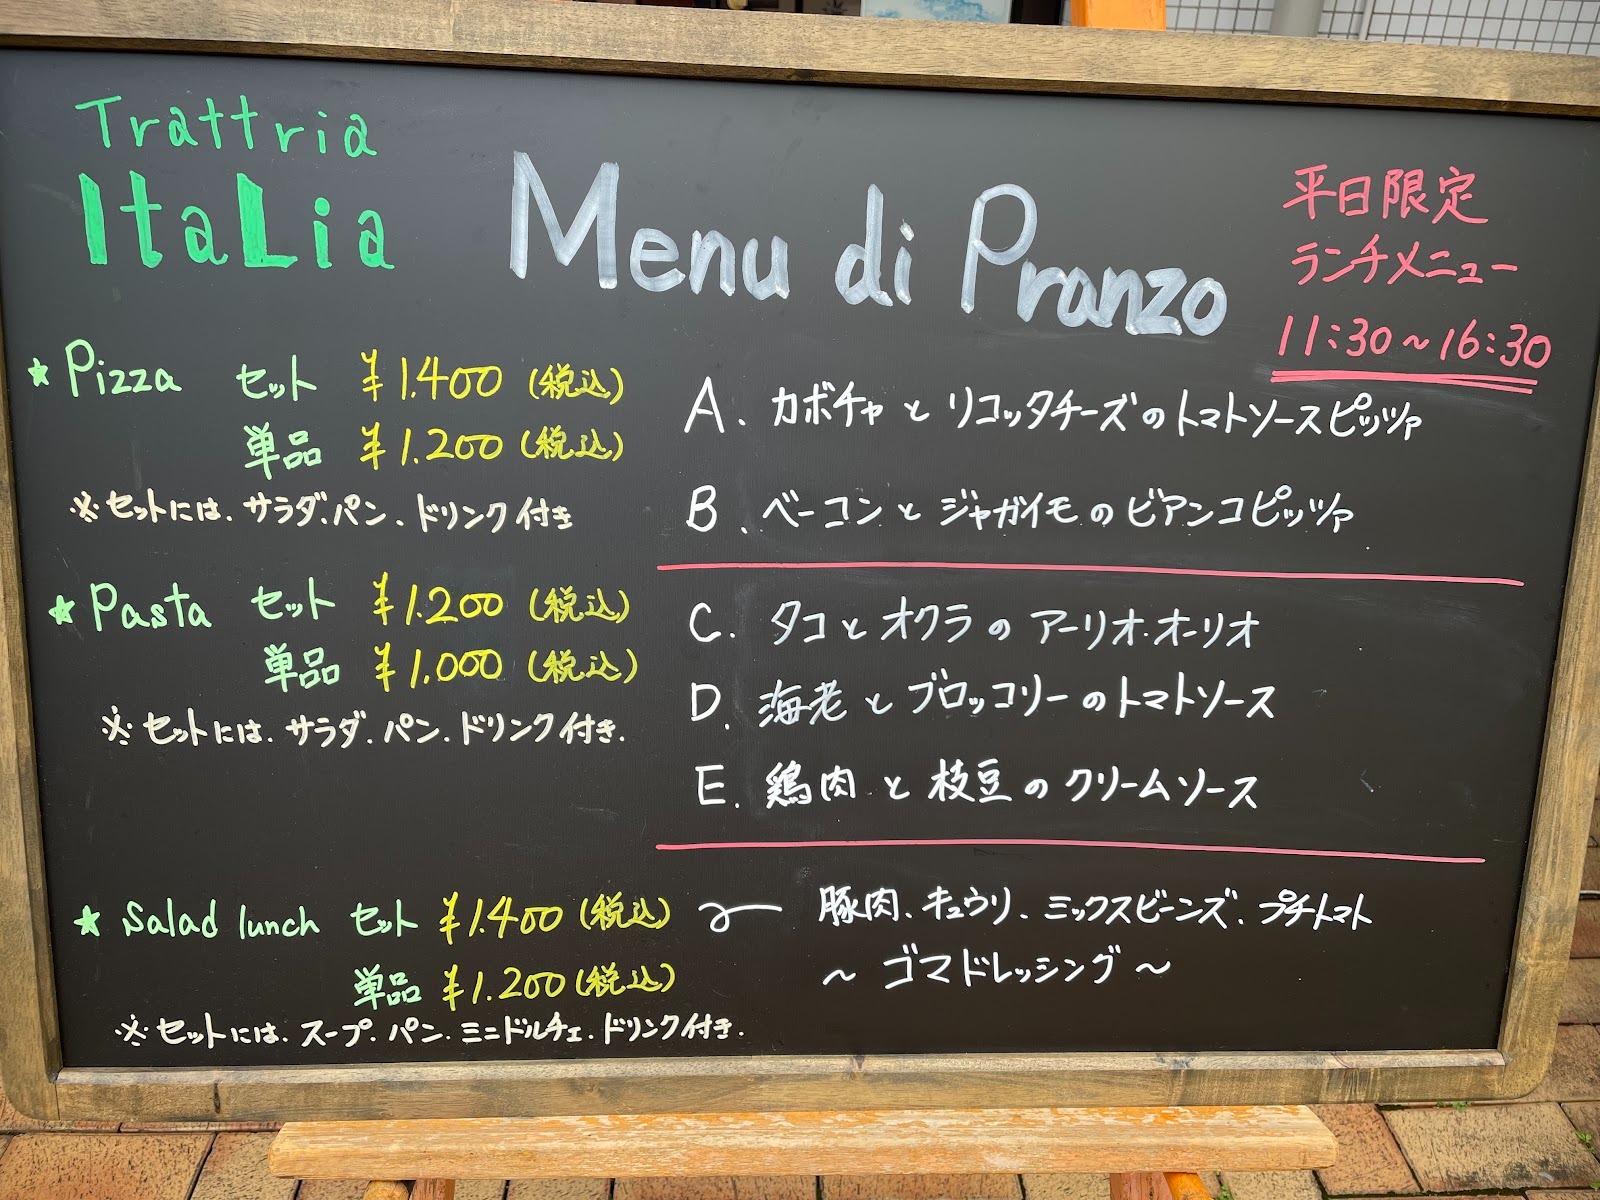 Trattria
ItaLia
Menu di Pranzo
平日限定
ランチメニュー
11:30~16:30
★ Pizza セット ¥1.400 (税込)
単品 ¥1.200 (税込)
※セットには、サラダ、パン、ドリンク付き
A. カボチャとリコッタチーズのトマトソースピッツァ
B. ベーコンとジャガイモのビアンコピッツァ
★ Pasta セット ¥1.200 (税込)
単品 ¥1.000 (税込)
※セットには、サラダ、パン、ドリンク付き.
C. タコとオクラのアーリオ・オーリオ
D. 海老とブロッコリーのトマトソース
E. 鶏肉と枝豆のクリームソース
★ Salad lunch セット ¥1.400 (税込)
単品 ¥1.200 (税込)
※セットには、スープ、パン、ミニドルチェ、ドリンク付き.
豚肉、キュウリ、ミックスビーンズ、プチトマト
～ゴマドレッシング～